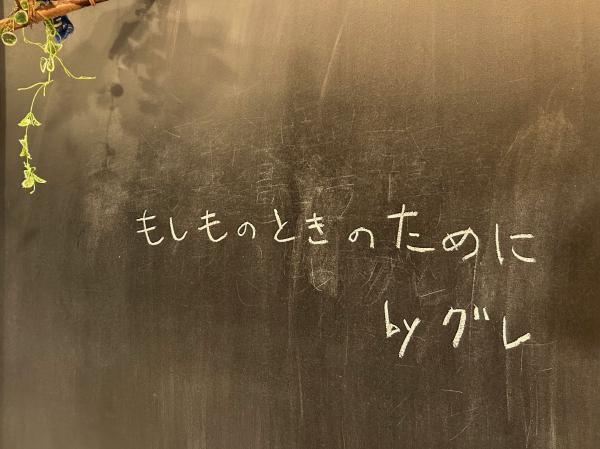 もしものときのために
by グレ